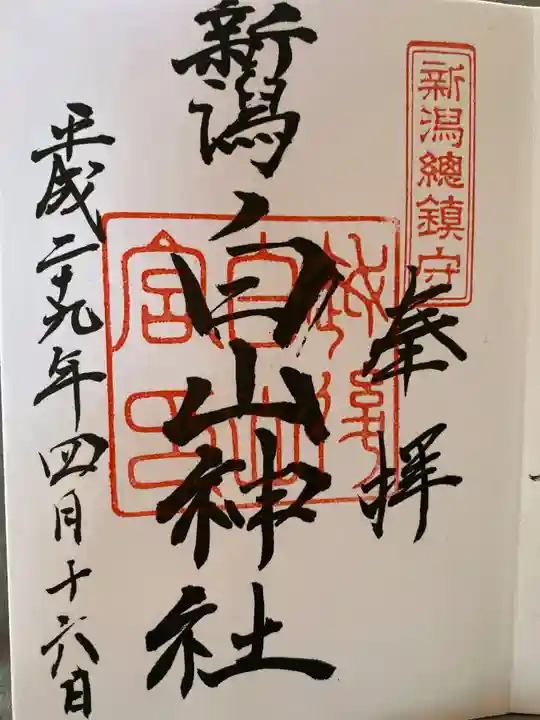 新潟總鎮守
奉拝
新潟白山神社
越後
白山
宮印
平成二十九年四月十六日